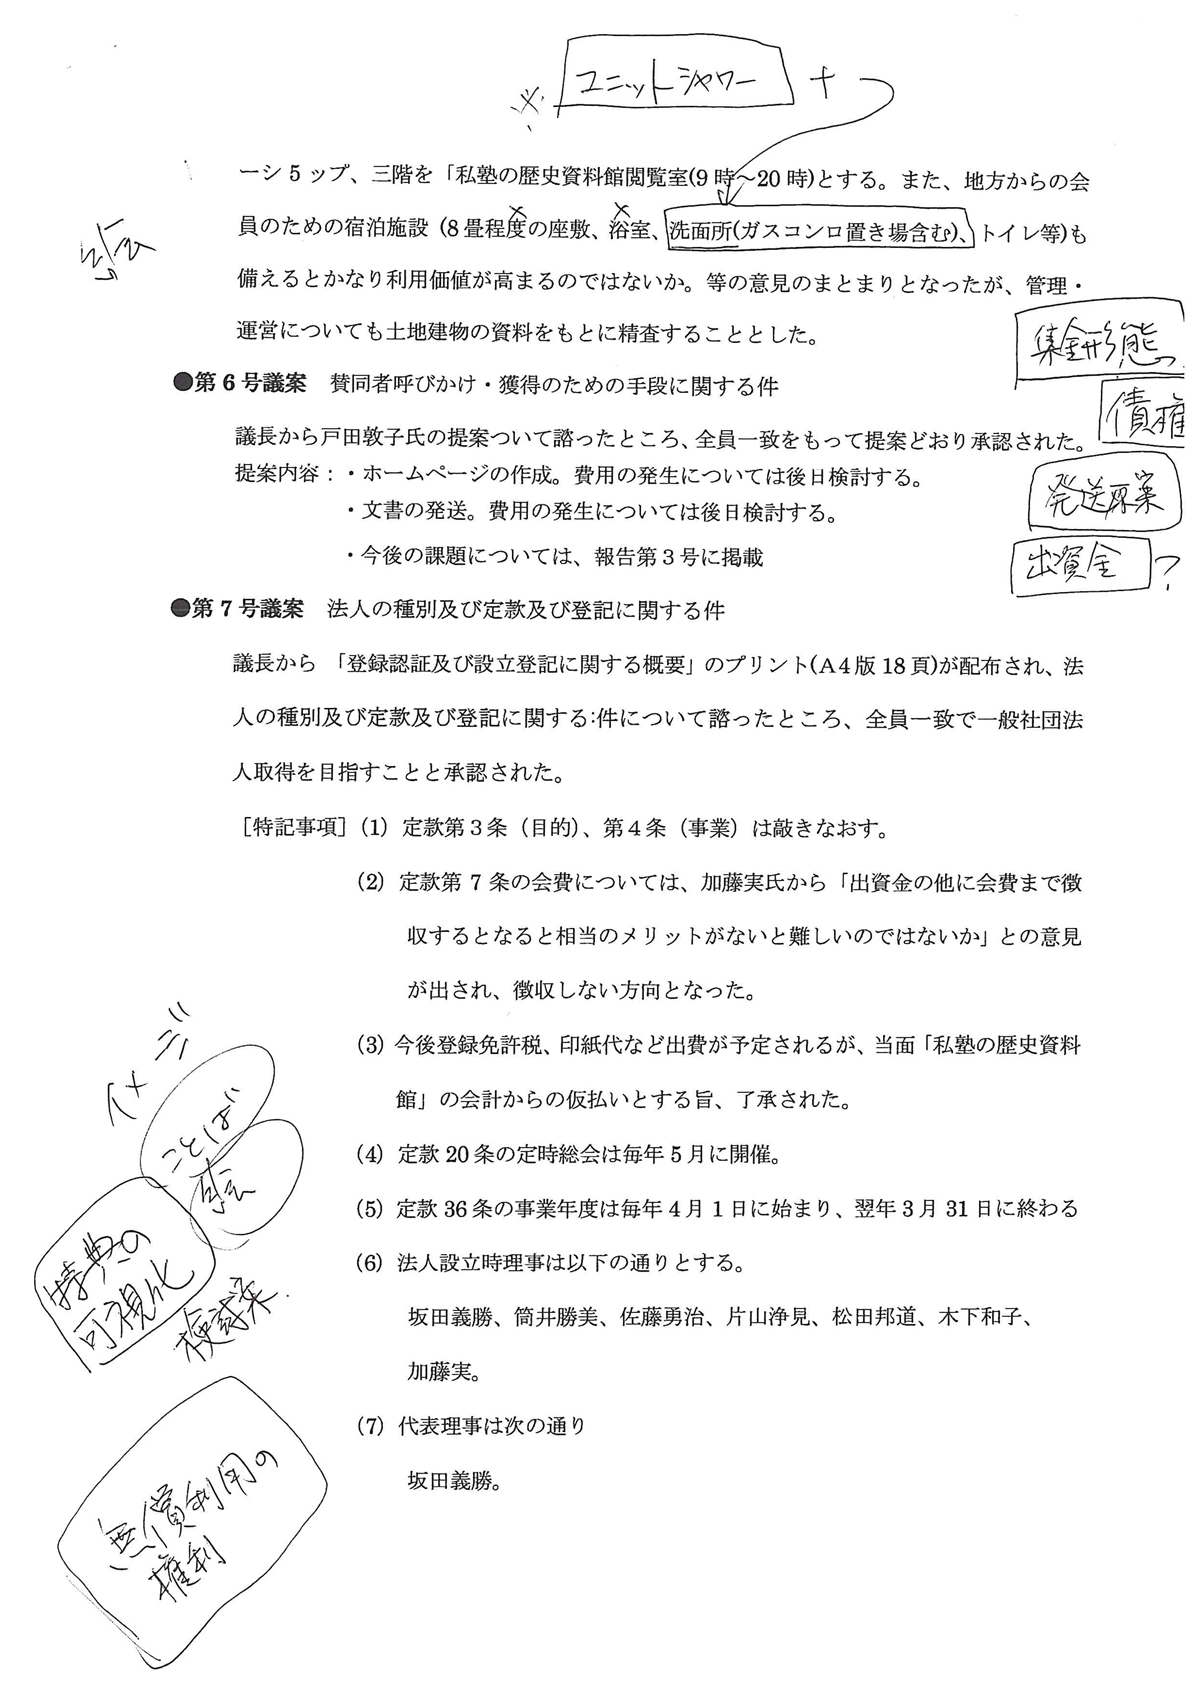 ※ ユニットシャワー +
ーシ5ップ、三階を「私塾の歴史資料館閲覧室(9時～20時)とする。また、地方からの会
員のための宿泊施設（8畳程度の座敷、浴室、洗面所(ガスコンロ置き場含む)、トイレ等)も
備えるとかなり利用価値が高まるのではないか。等の意見のまとまりとなったが、管理・
運営についても土地建物の資料をもとに精査することとした。
集金形態
●第6号議案　賛同者呼びかけ・獲得のための手段に関する件
債権
議長から戸田敦子氏の提案ついて諮ったところ、全員一致をもって提案どおり承認された。
提案内容：・ホームページの作成。費用の発生については後日検討する。
発送原案
・文書の発送。費用の発生については後日検討する。
・今後の課題については、報告第3号に掲載
出資金？
●第7号議案　法人の種別及び定款及び登記に関する件
議長から　「登録認証及び設立登記に関する概要」のプリント(A4版18頁)が配布され、法
人の種別及び定款及び登記に関する:件について諮ったところ、全員一致で一般社団法
人取得を目指すことと承認された。
［特記事項］（1）定款第３条（目的）、第４条（事業）は敲きなおす。
（2）定款第 7 条の会費については、加藤実氏から「出資金の他に会費まで徴
収するとなると相当のメリットがないと難しいのではないか」との意見
が出され、徴収しない方向となった。
（3）今後登録免許税、印紙代など出費が予定されるが、当面「私塾の歴史資料
館」の会計からの仮払いとする旨、了承された。
（4）定款 20 条の定時総会は毎年 5 月に開催。
（5）定款 36 条の事業年度は毎年 4 月 1 日に始まり、翌年 3 月 31 日に終わる
（6）法人設立時理事は以下の通りとする。
坂田義勝、筒井勝美、佐藤勇治、片山浄見、松田邦道、木下和子、
加藤実。
（7）代表理事は次の通り
坂田義勝。
ことば
特典の
可視化
検討案
無償利用の
権利